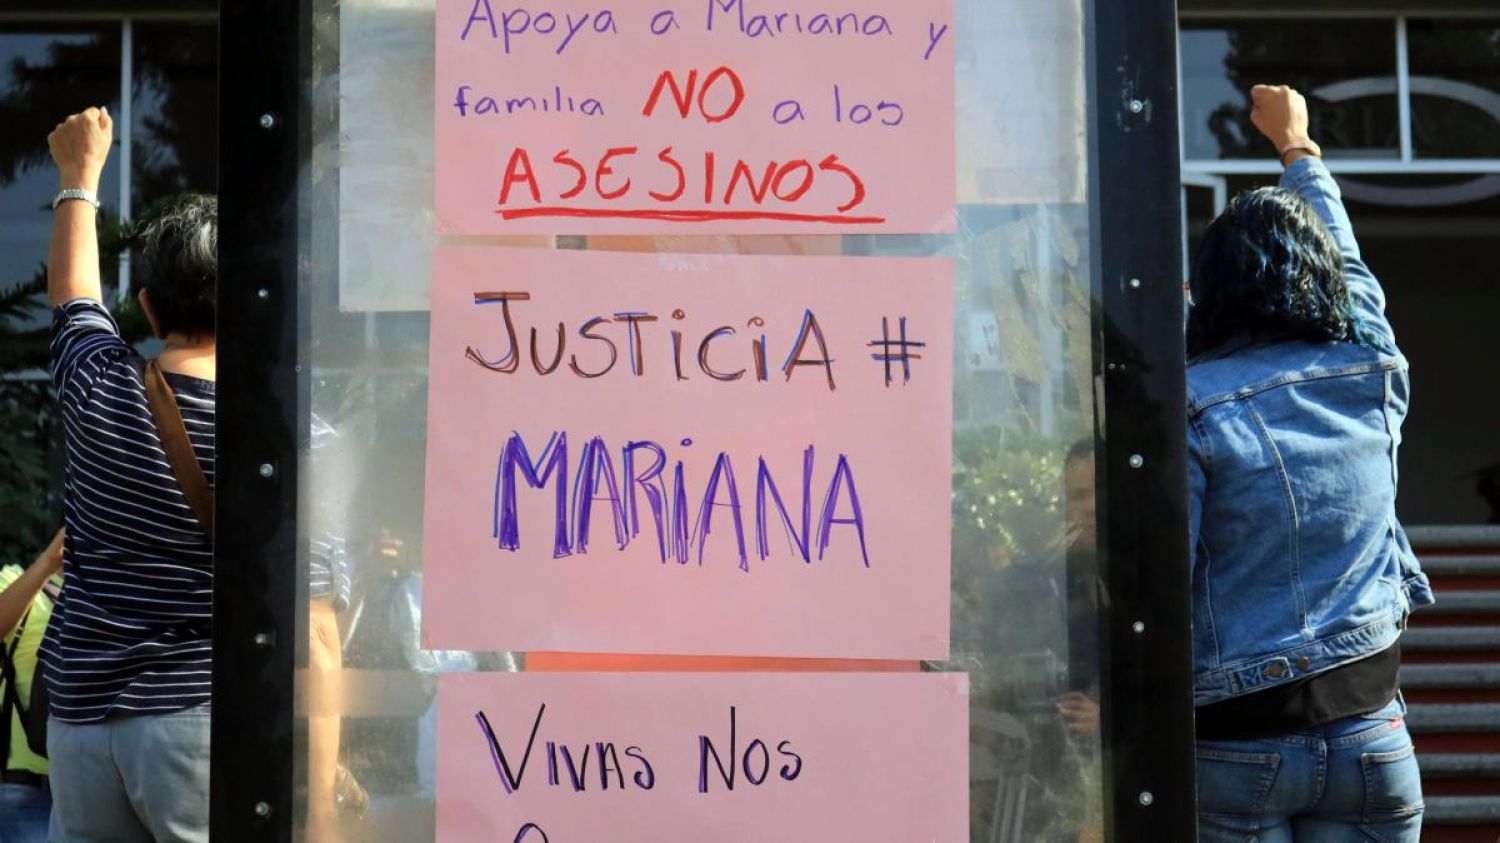 Apoya a Mariana y
familia NO a los
ASESINOS
JUSTICIA #
MARIANA
VIVAS NOS